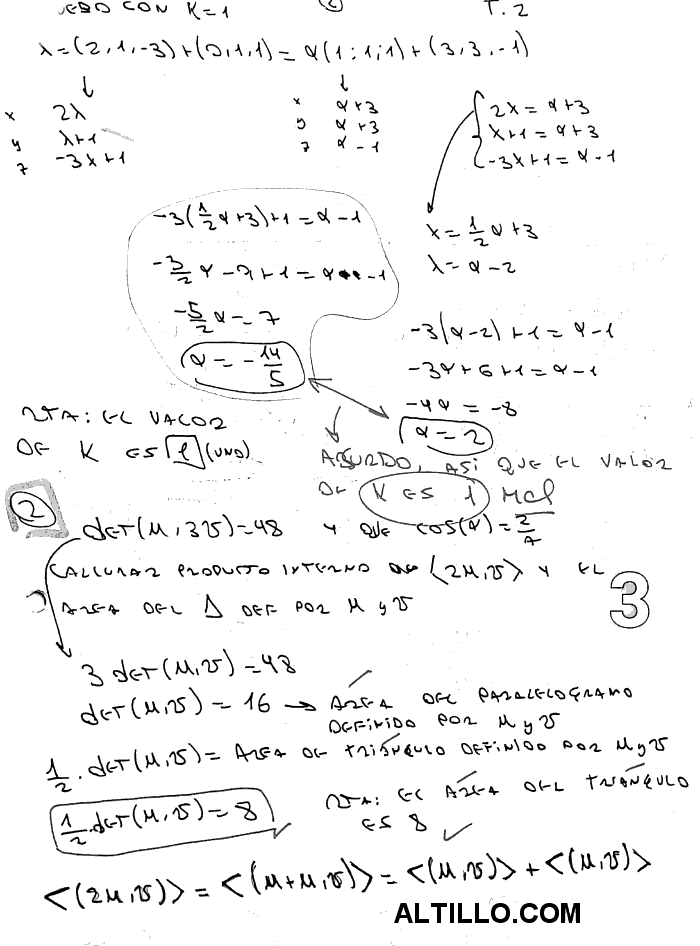 CON K=1 (2) T. 2
λ=(2,1,-3)+(0,1,1)=α(1,1,1)+(3,3,-1)
x 2λ x α+3 2λ=α+3
y λ+1 y α+3 λ+1=α+3
z -3λ+1 z α-1 -3λ+1=α-1
-3(1/2 α+3)+1=α-1 λ=1/2 α+3
-3/2 α-9+1=α-1 λ=α-2
-5/2 α=7 -3(α-2)+1=α-1
α=-14/5 -3α+6+1=α-1
-4α=-8
RTA: EL VALOR α=2
DE K ES 1 (UNO) ABSURDO, ASÍ QUE EL VALOR
DE K ES 1 MAL
2 det(u,3v)=48 Y QUE cos(α)=2/7
CALCULAR PRODUCTO INTERNO DE <2u,v> Y EL
AREA DEL Δ DEF POR u y v
3
3 det(u,v)=48
det(u,v)=16 → ÁREA DEL PARALELOGRAMO
DEFINIDO POR u y v
1/2 . det(u,v)= AREA DE TRIÁNGULO DEFINIDO POR u y v
1/2 . det(u,v)=8 RTA: EL ÁREA DEL TRIÁNGULO
ES 8
<(2u,v)> = <(u+u,v)> = <(u,v)> + <(u,v)>
ALTILLO.COM